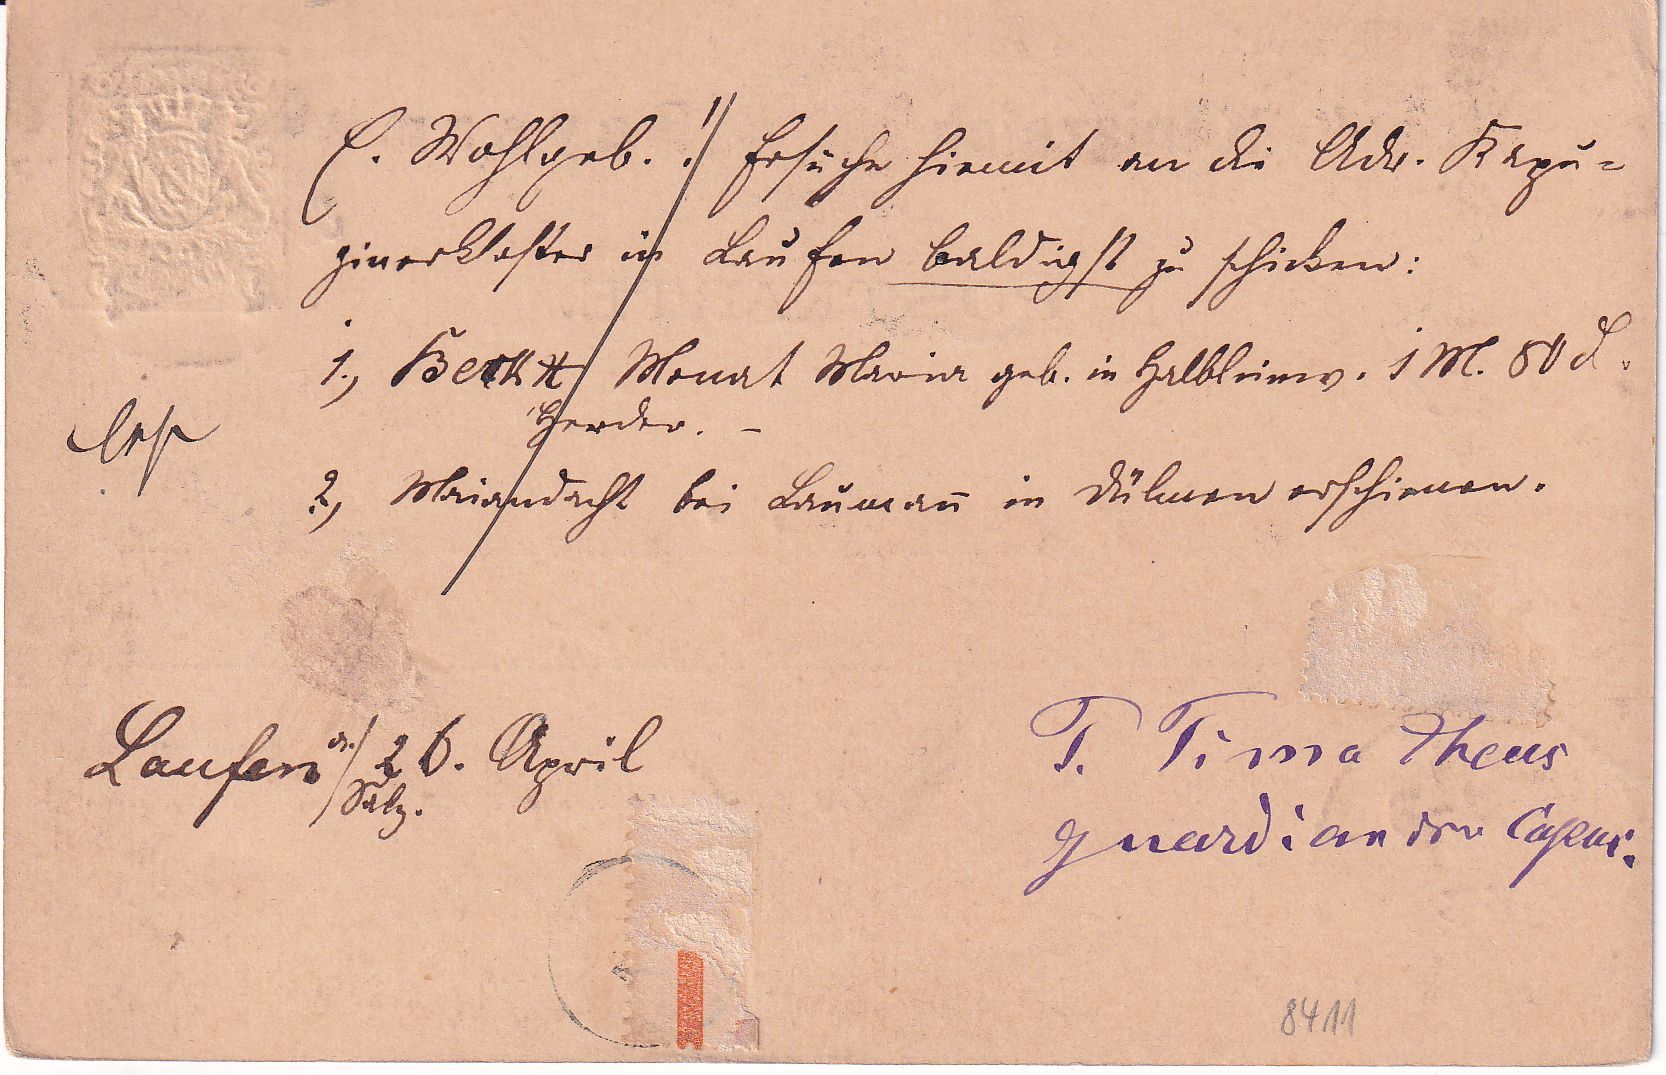 E. Wohlgeb.! Ersuche hiemit an die Adr. Kapu=
zinerkloster in Laufen baldigst zu schicken:
1., Monat Maria geb. in Halbleinw. 1 M. 80 d.
Herder. –
2., Maiandacht bei Laumann in Dülmen erschienen.
Laufen a./Salz. 26. April
P. Timotheus
Guardian der Capuc.
8411